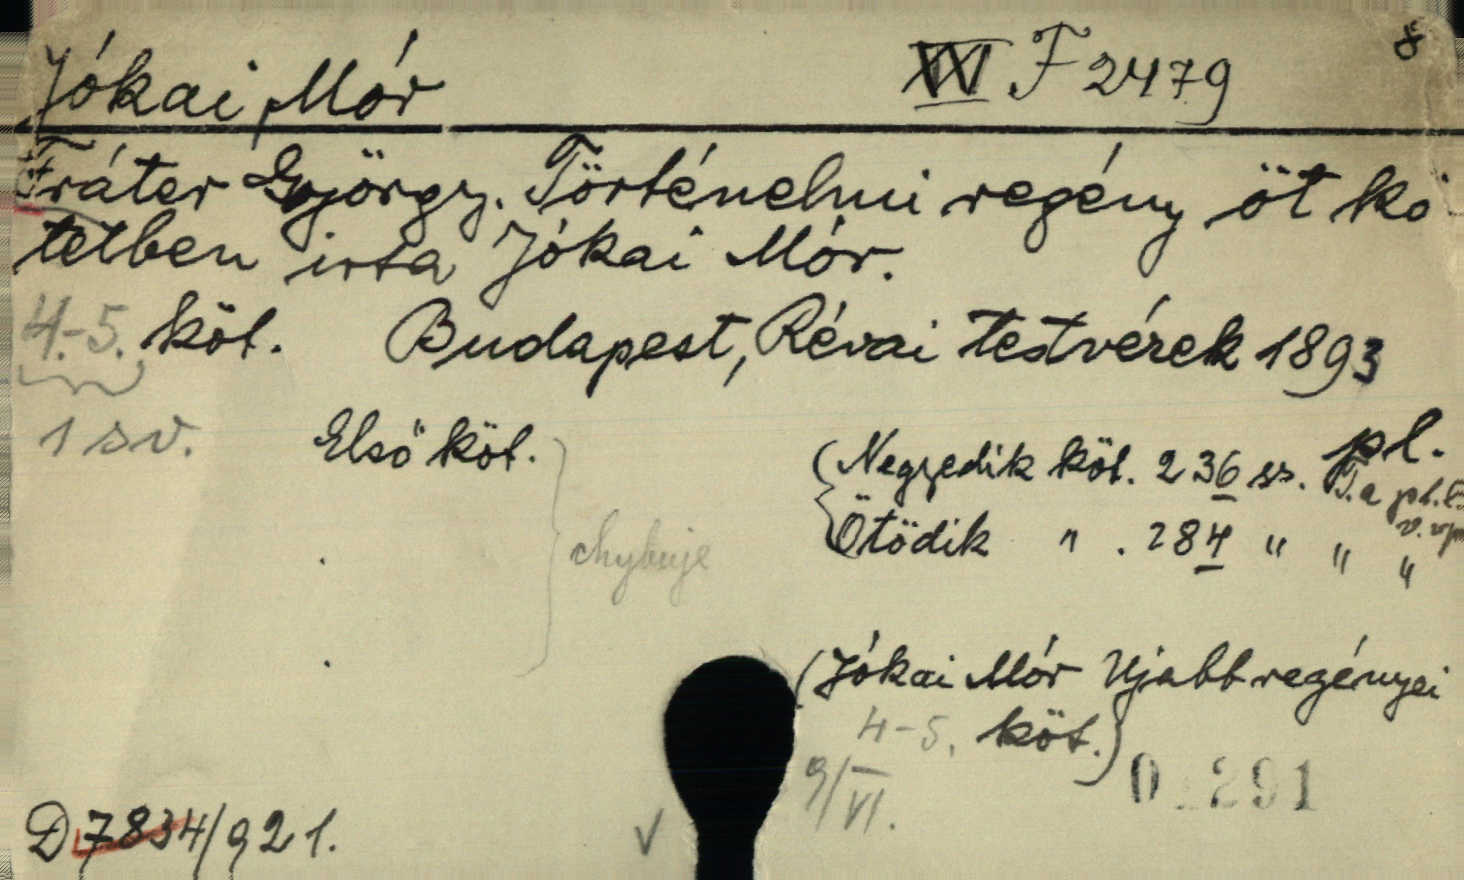 8
Jókai Mór XXI F 2479
Fráter György. Történelmi regény öt kö-
tetben irta Jókai Mór.
4.-5. köt. Budapest, Révai testvérek 1893
1 sv. Első köt. pl.
chybuje
(Negyedik köt. 236 ss.
Ötödik " . 284 " " "
(Jókai Mór Ujabb regényei
4-5. köt.)
9/VI.
0 291
D 7834/921.